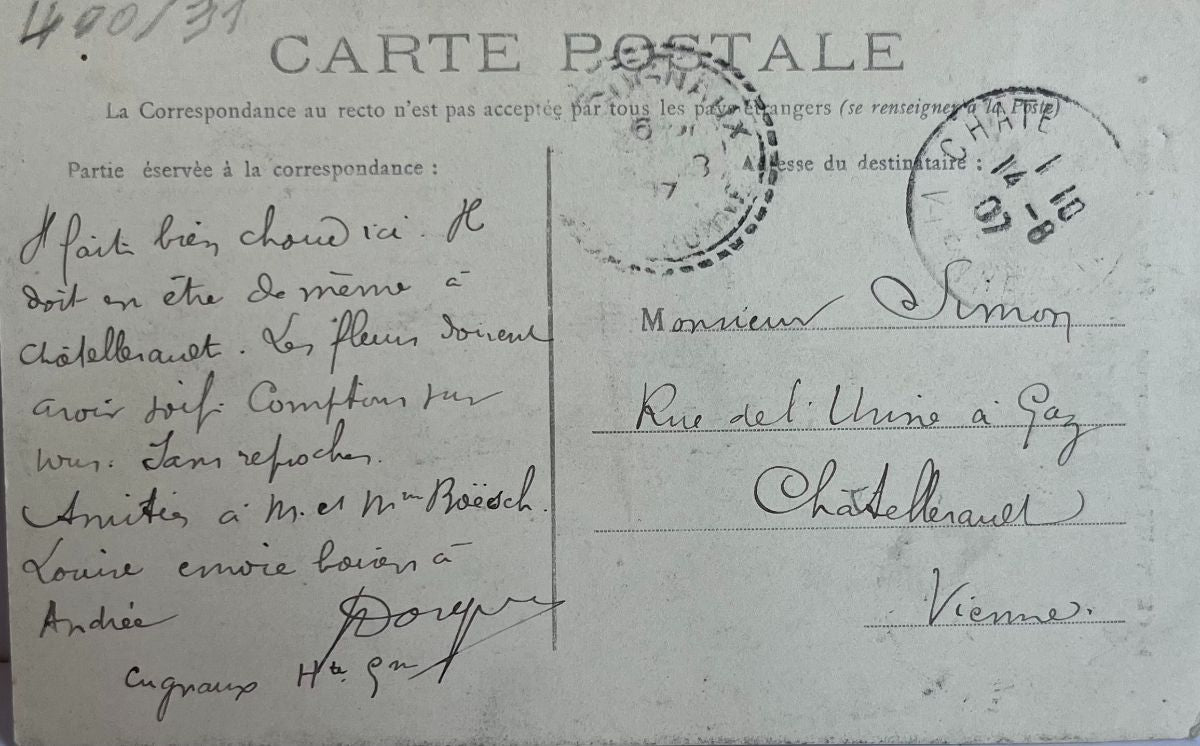 400/31
CARTE POSTALE
La Correspondance au recto n'est pas acceptée par tous les pays étrangers (se renseigner à la Poste)
Partie éservèe à la correspondance :
Il fait bien chaud ici. Il
doit en être de même à
Châtellerault. Les fleurs doivent
avoir soif. Comptons sur
vous. Sans reproches.
Amitiés à M. et Mme Boësch.
Louise envoie baisers à
Andrée
Cugnaux Hte Gne
Adresse du destinataire :
Monsieur Simon
Rue de l'Usine à Gaz
Châtellerault
Vienne.
CHATE
1 10
14 -8
07